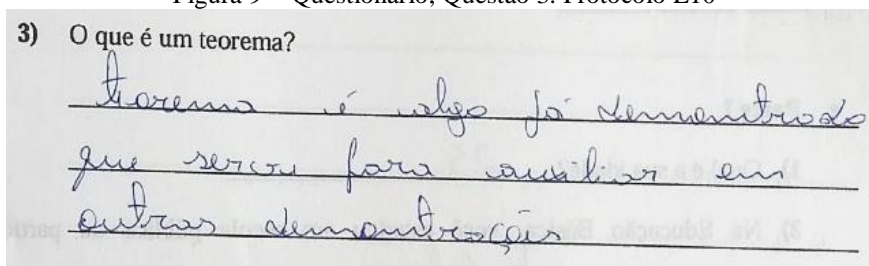 Figura 9 – Questionário, Questão 3: Protocolo E10
3) O que é um teorema?
teorema é algo já demonstrado
que serviu para auxiliar em
outras demonstrações